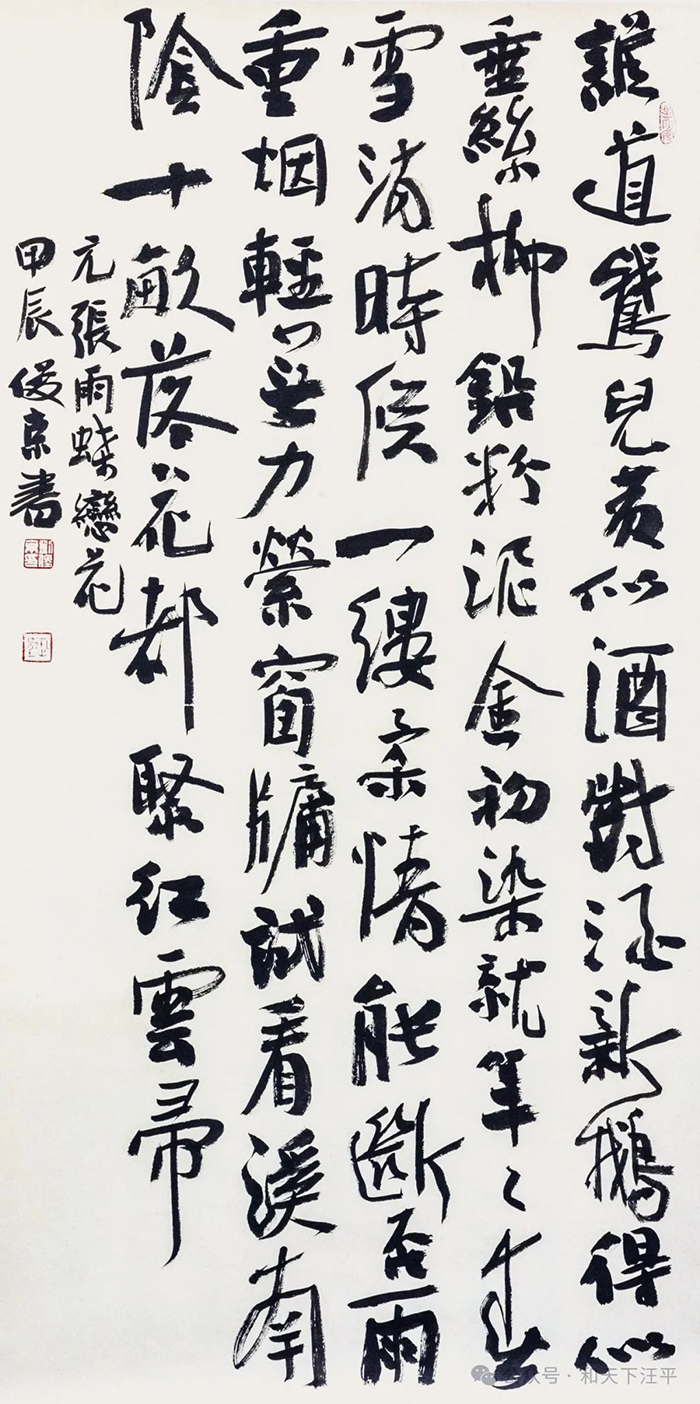 誰道鵞兒黄似酒對酒新鵝得似
垂絲柳鉛粉泥金初染就年〻春
雪消時候一縷柔情能斷否雨
重烟輕無力縈窗牖試看溪南
陰十畝落花都聚紅雲帚
元張雨蝶戀花
甲辰俊京書
公众号·和天下汪平